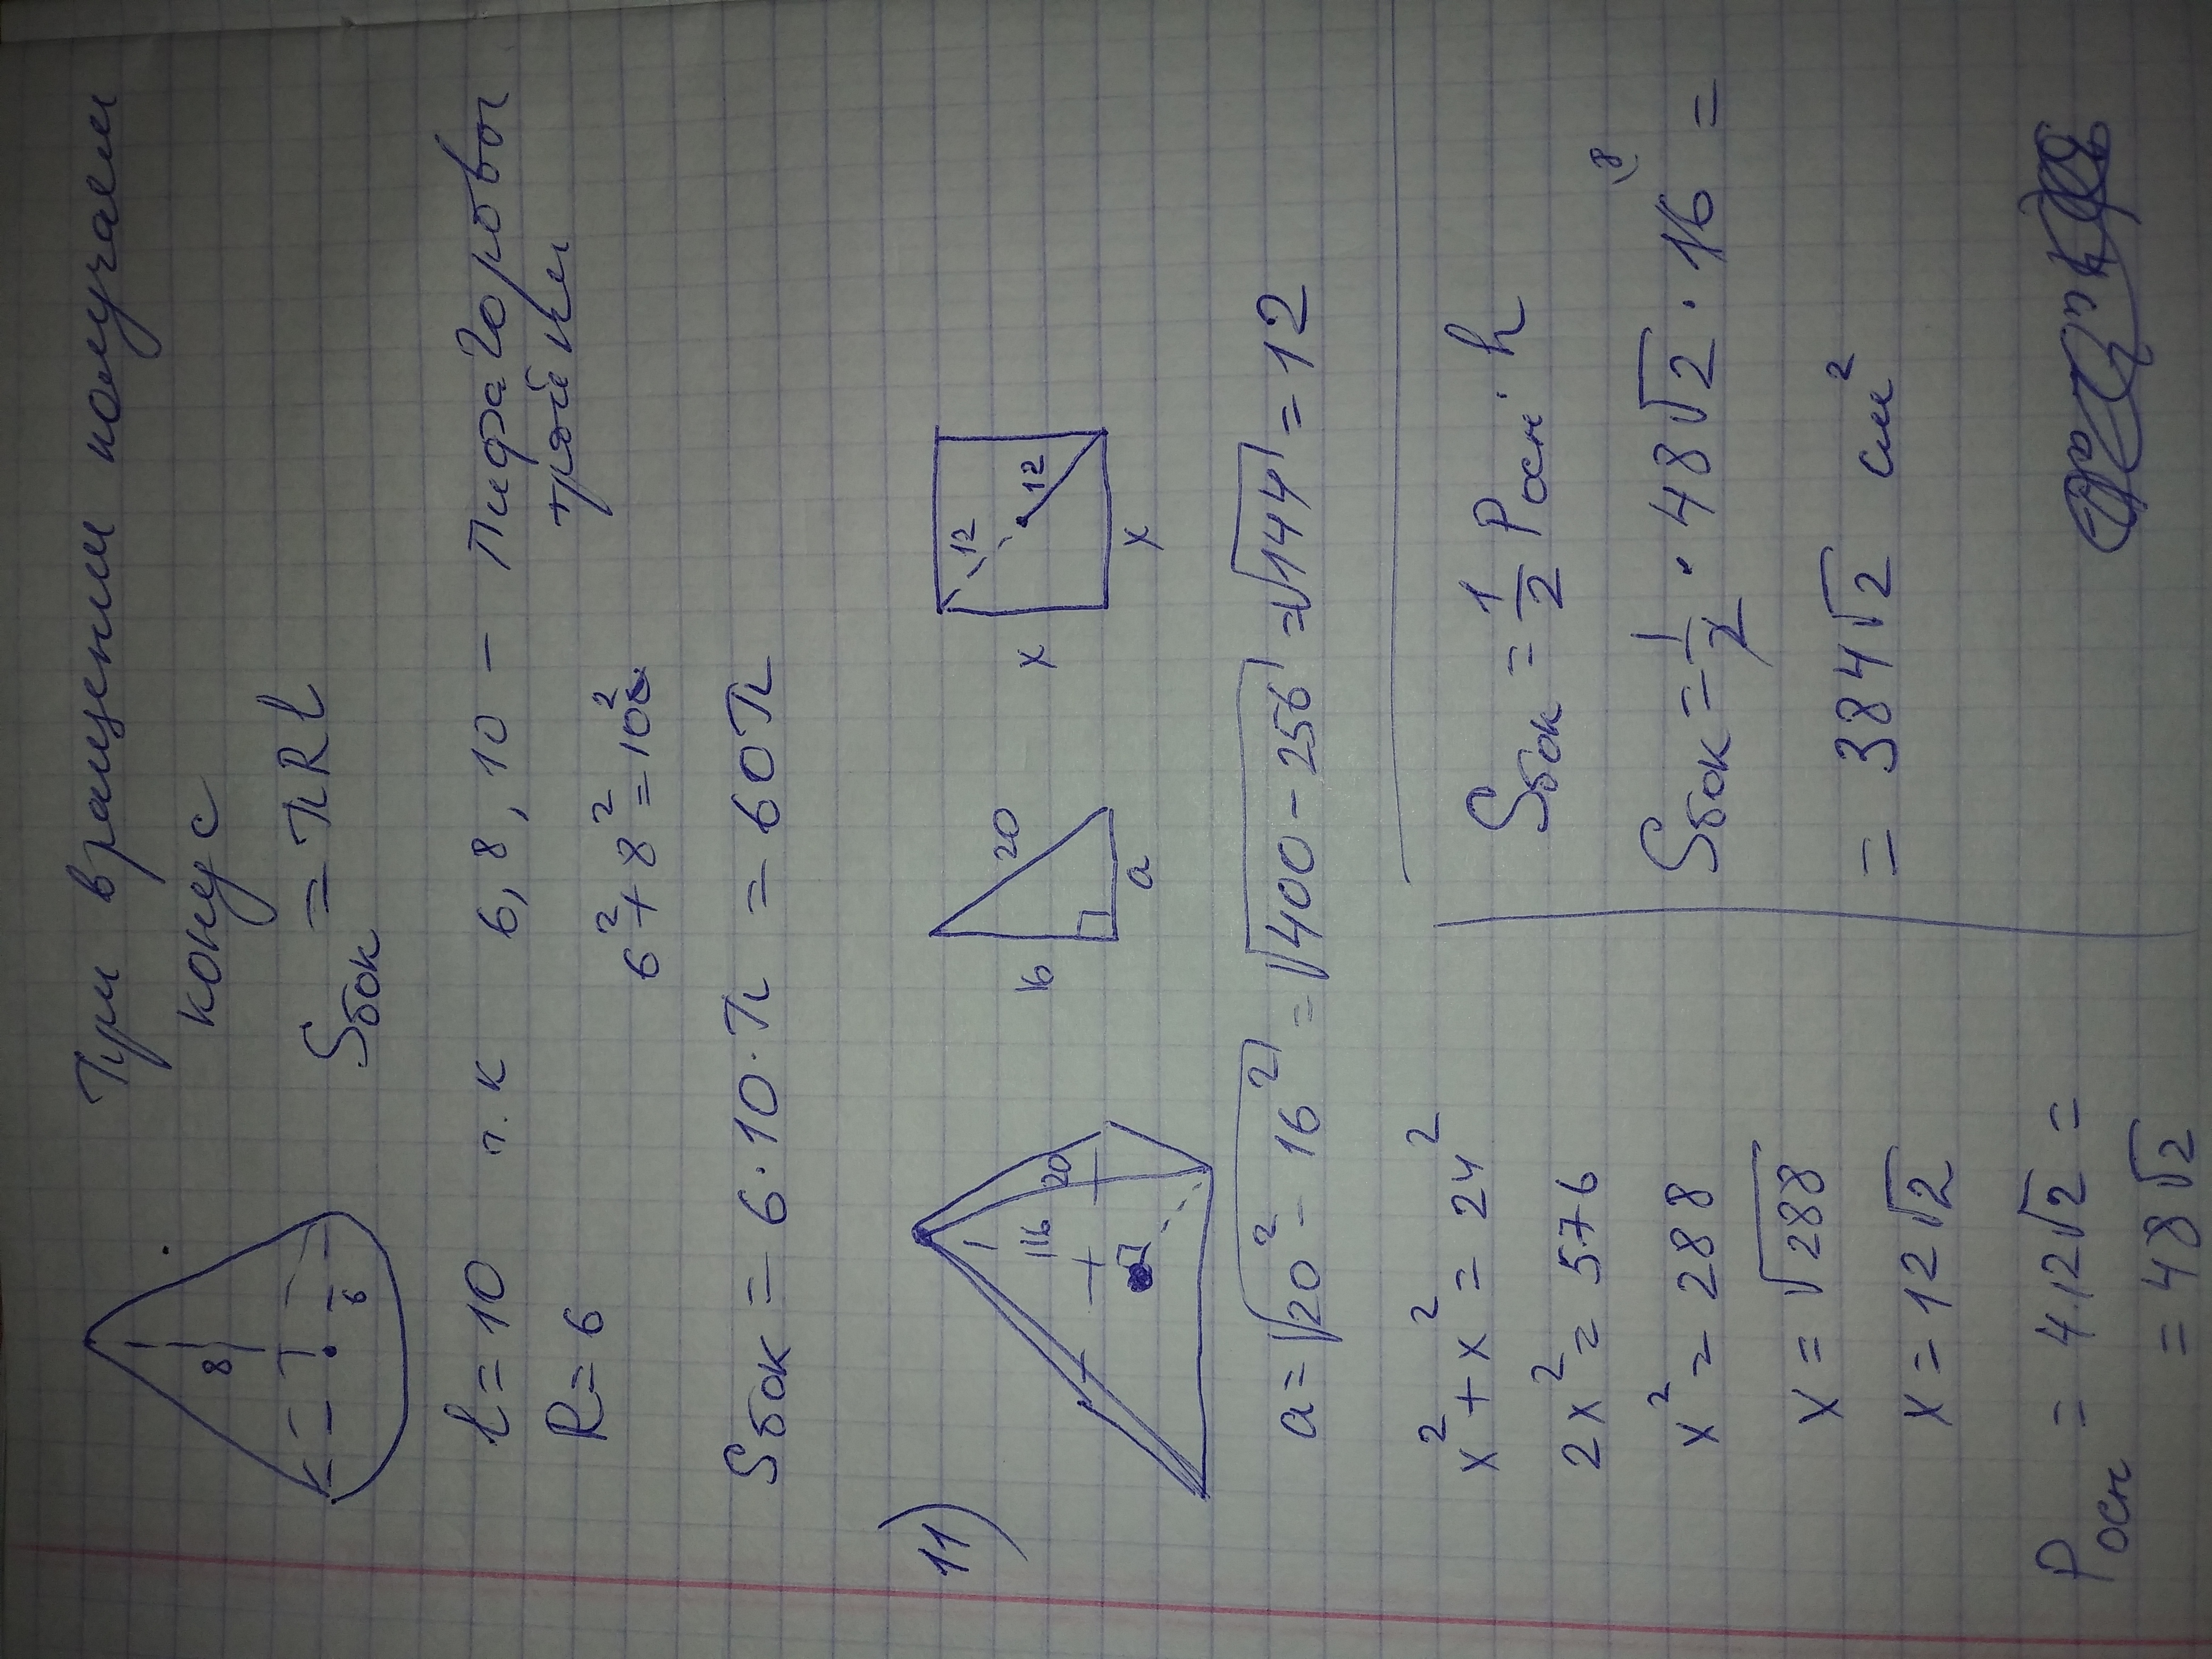 При вращении получаем
конус
Sбок = πRl
8
6
l = 10 т.к 6, 8, 10 – Пифагоровы
тройки
R = 6
6² + 8² = 10²
Sбок = 6 · 10 · π = 60π
11)
16
20
16
20
a
12
12
x
x
a = √20² - 16² = √400 - 256 = √144 = 12
x² + x² = 24²
2x² = 576
x² = 288
x = √288
x = 12√2
Pосн = 4·12√2 =
= 48√2
Sбок = 1/2 Pосн · h
Sбок = 1/2 · 48√2 · 16 8 =
= 384√2 см²